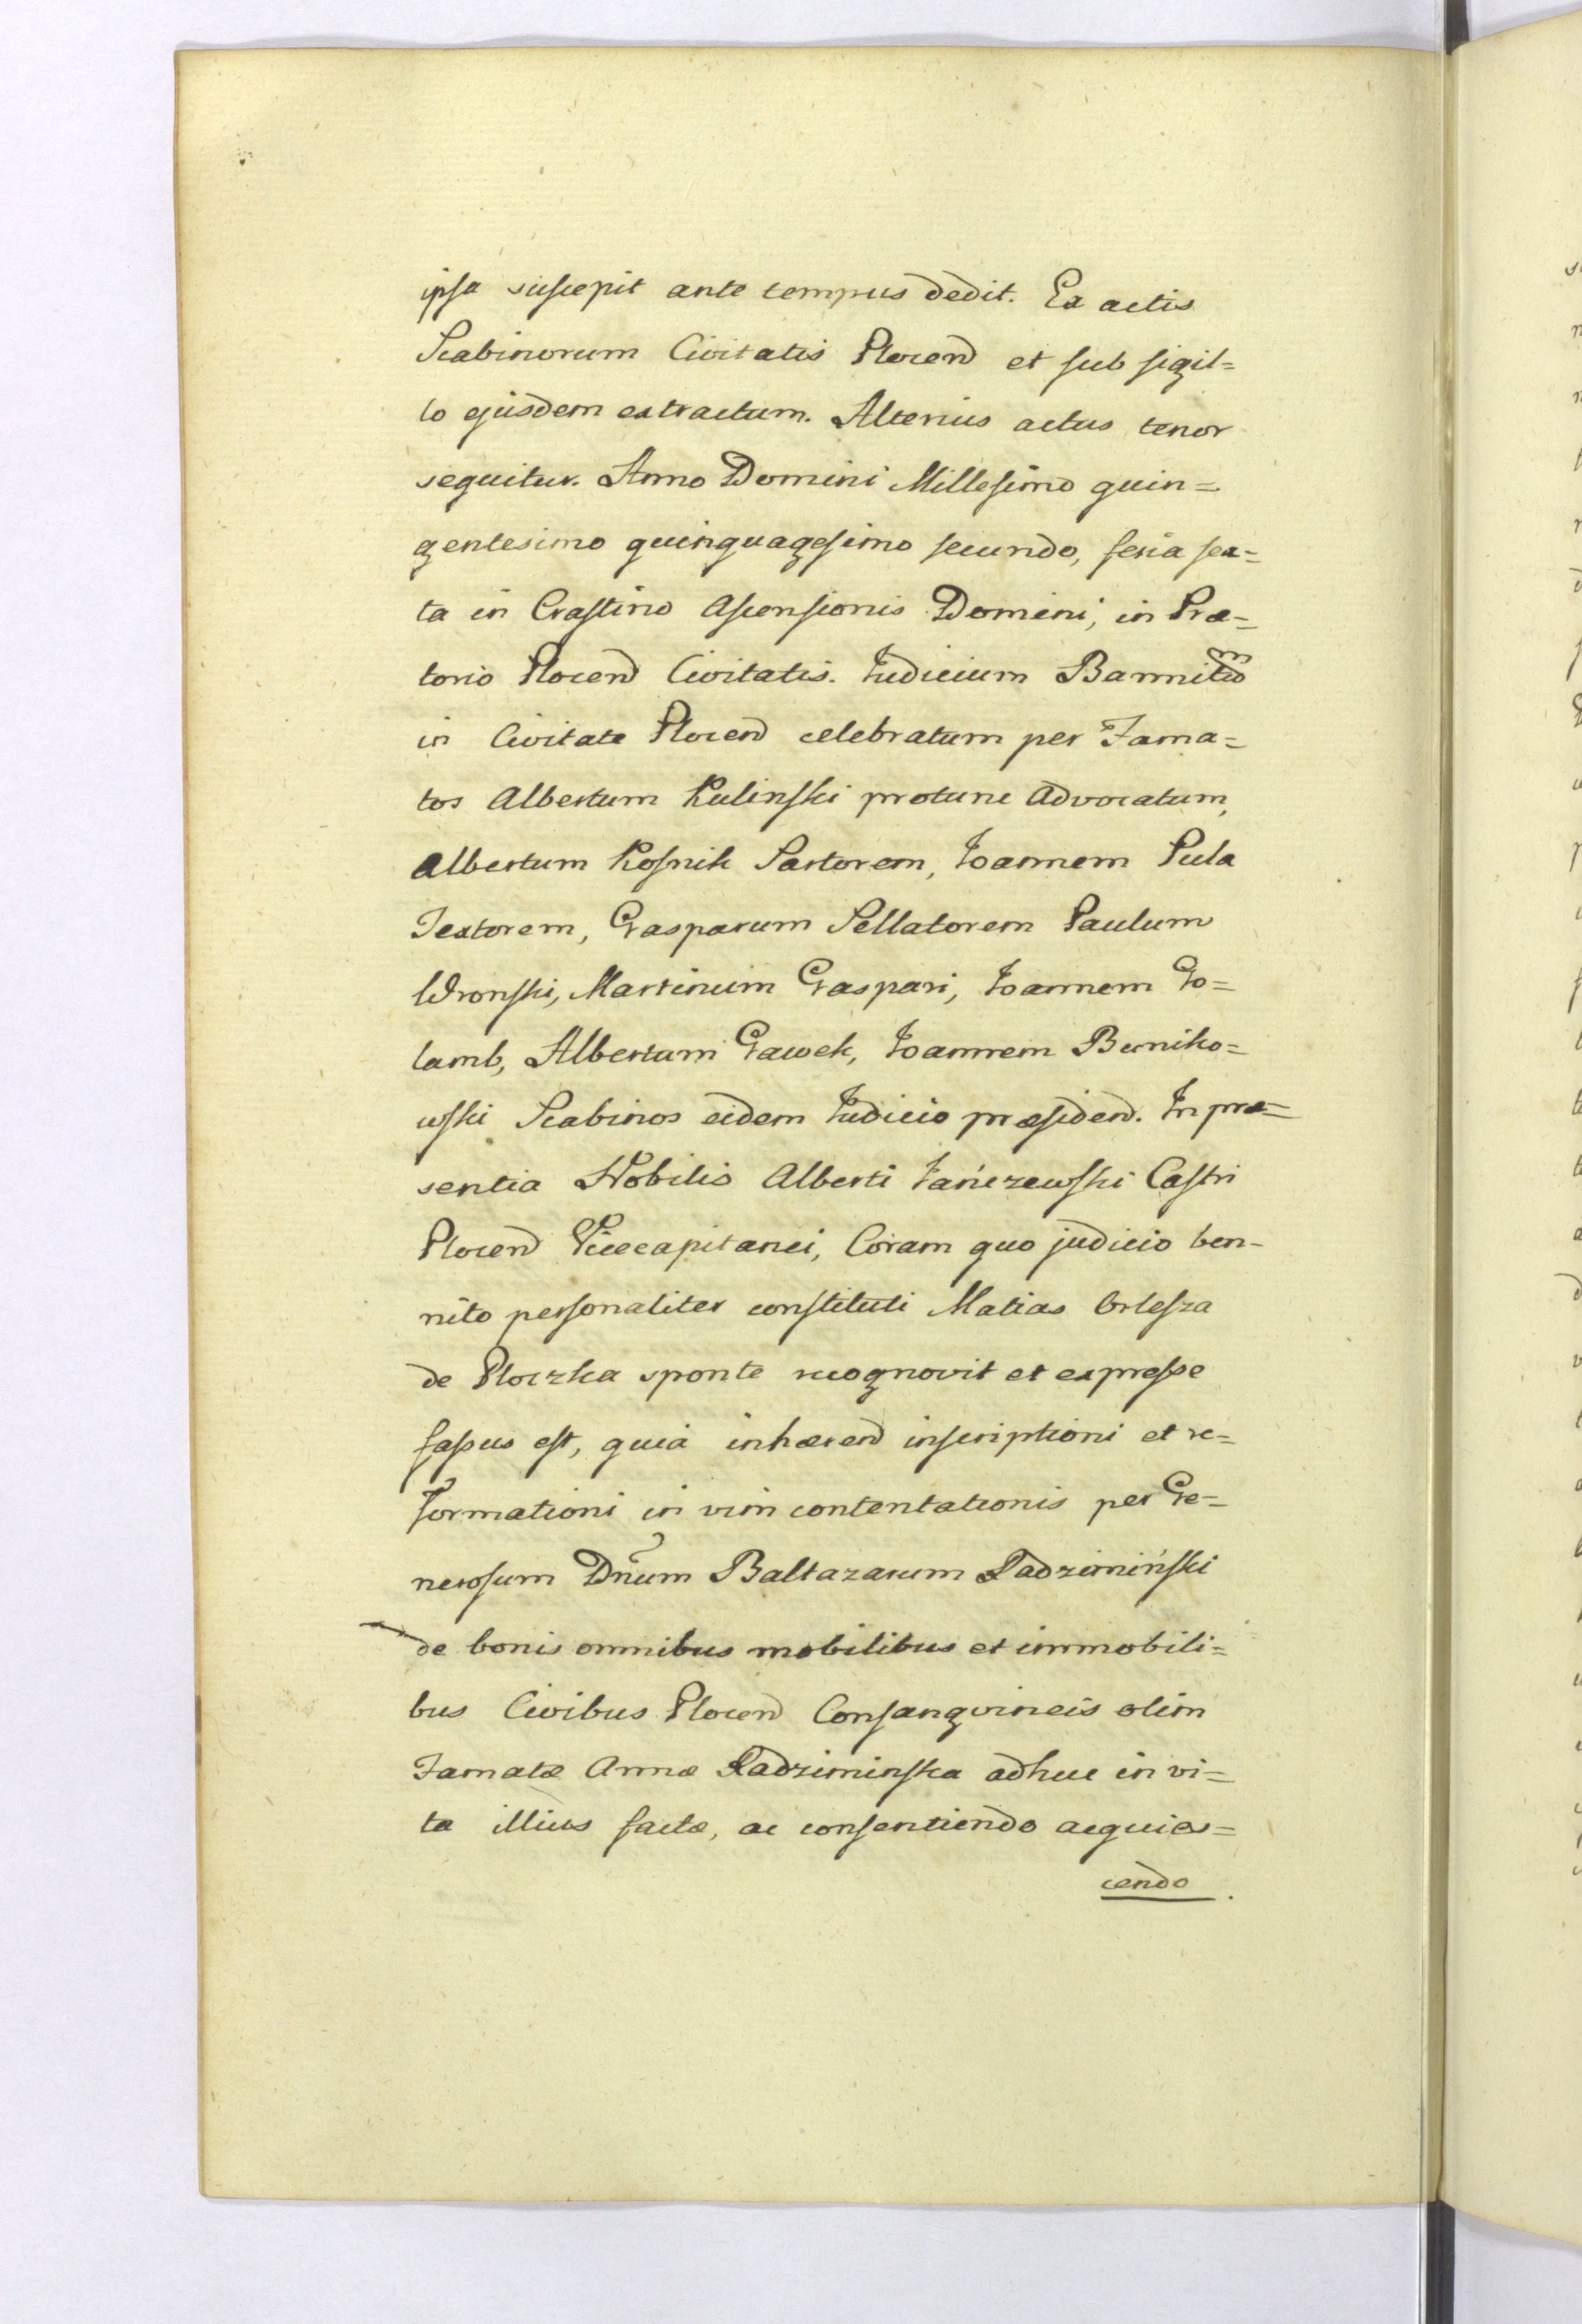 ipsa suscepit ante tempus dedit. Ex actis
Scabinorum Civitatis Plocen et sub sigil=
lo ejusdem extractum. Alterius actus tenor
sequitur. Anno Domini Millesimo quin=
gentesimo quinquagesimo secundo, feria sex=
ta in Crastino Ascensionis Domini, in Præ=
torio Plocen Civitatis. Judicium Bannitum
in Civitate Plocen celebratum per Fama=
tos Albertum Kulinski protunc Advocatum,
Albertum Kosnik Sartorem, Joannem Pula
Textorem, Gasparum Sellatorem Paulum
Wronski, Martinum Gaspari, Joannem Go=
lamb, Albertum Gawek, Joannem Buniko=
wski Scabinos eidem Judicio præsiden. In præ=
sentia Nobilis Alberti Jańczewski Castri
Plocen Vicecapitanei, Coram quo judicio ben=
nito personaliter constituti Matias Orlesza
de Ploczka sponte recognovit et expresse
fassus est, quia inhæren inscriptioni et re=
formationi in vim contentationis per Ge=
nerosum Dnum Baltazarum Radzimiński
de bonis omnibus mobilibus et immobili=
bus Civibus Plocen Consangvineis olim
Famatæ Annæ Radziminska adhuc in vi=
ta illius factæ, ac consentiendo acquies=
cendo